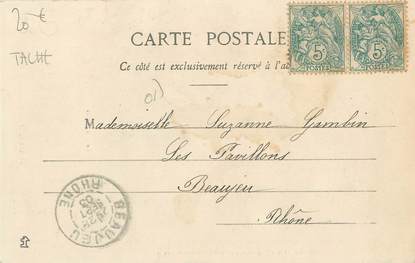 20 €
TACHE
CARTE POSTALE
Ce côté est exclusivement réservé à l'ad
5c 5c
POSTES POSTES
Mademoiselle Suzanne Gambin
Les Pavillons
Beaujeu
Rhône
BEAUJEU
SEPT
03
RHONE